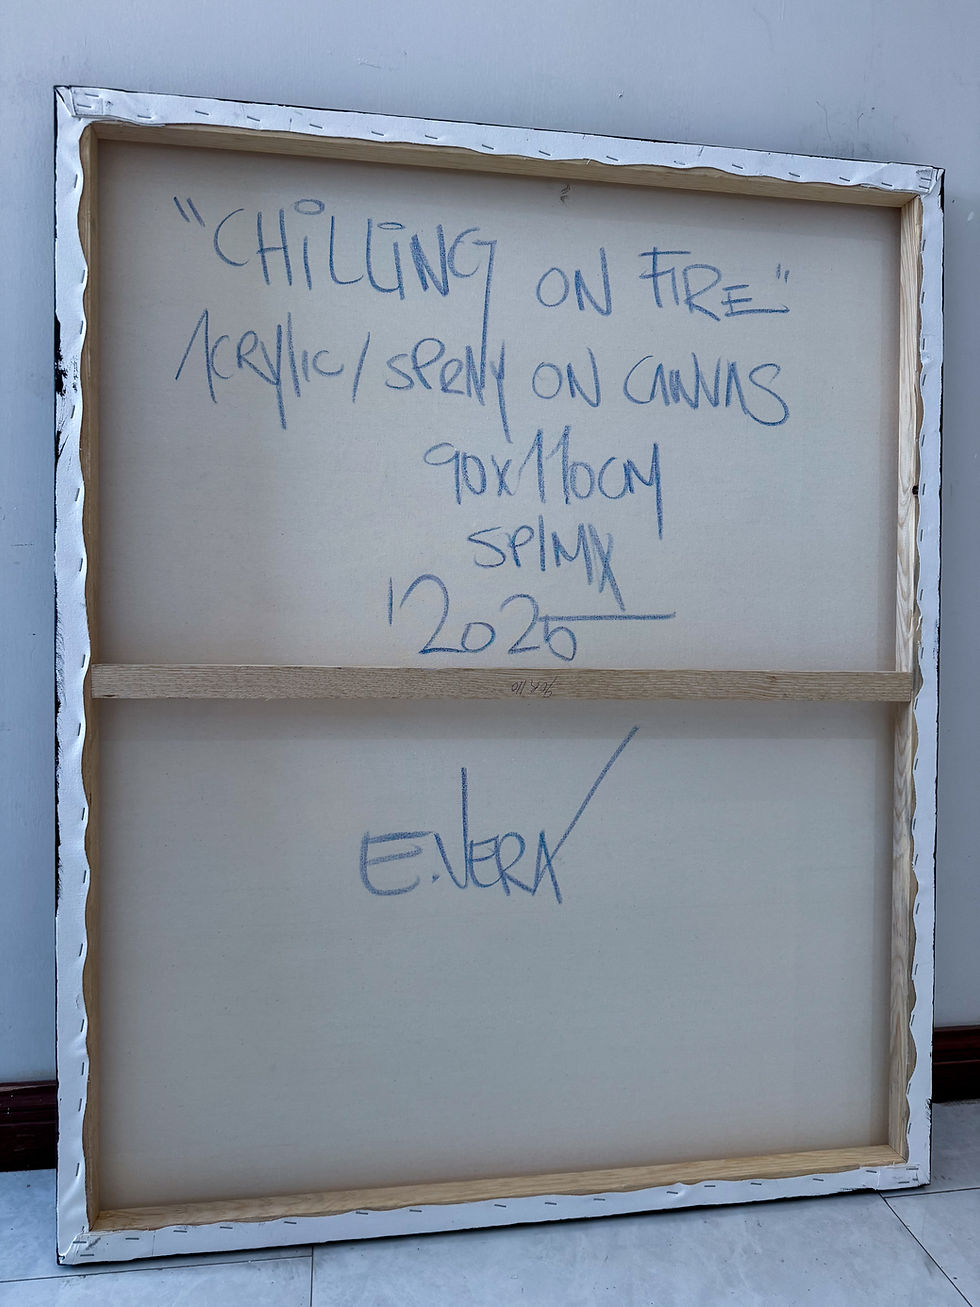 "CHiLLiNG ON FIRE"
ACRYlic / SPRAY ON CANVAS
90x110CM
SP/MIX
'2025
90x110
E.VERA